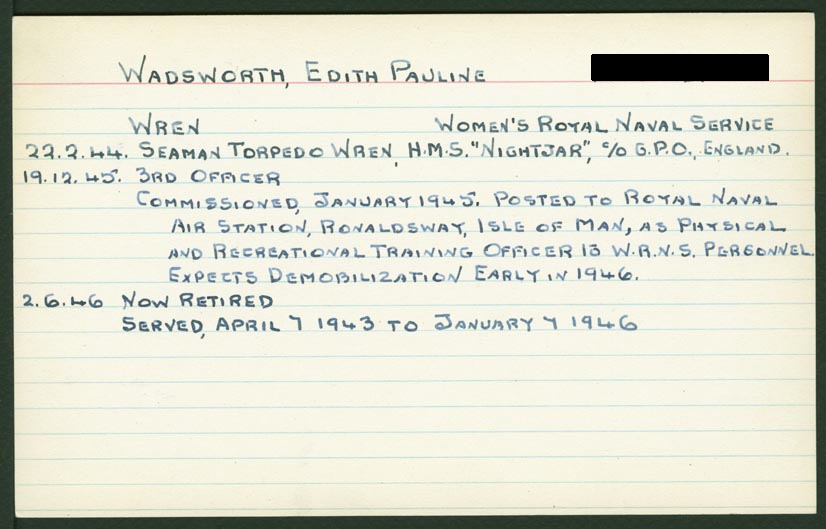 WADSWORTH, EDITH PAULINE
WREN WOMEN'S ROYAL NAVAL SERVICE
22.2.44. SEAMAN TORPEDO WREN, H.M.S. "NIGHTJAR", c/o G.P.O., ENGLAND.
19.12.45. 3RD OFFICER
COMMISSIONED, JANUARY 1945. POSTED TO ROYAL NAVAL
AIR STATION, RONALDSWAY, ISLE OF MAN, AS PHYSICAL
AND RECREATIONAL TRAINING OFFICER TO W.R.N.S. PERSONNEL.
EXPECTS DEMOBILIZATION EARLY IN 1946.
2.6.46 NOW RETIRED
SERVED, APRIL 7 1943 TO JANUARY 7 1946